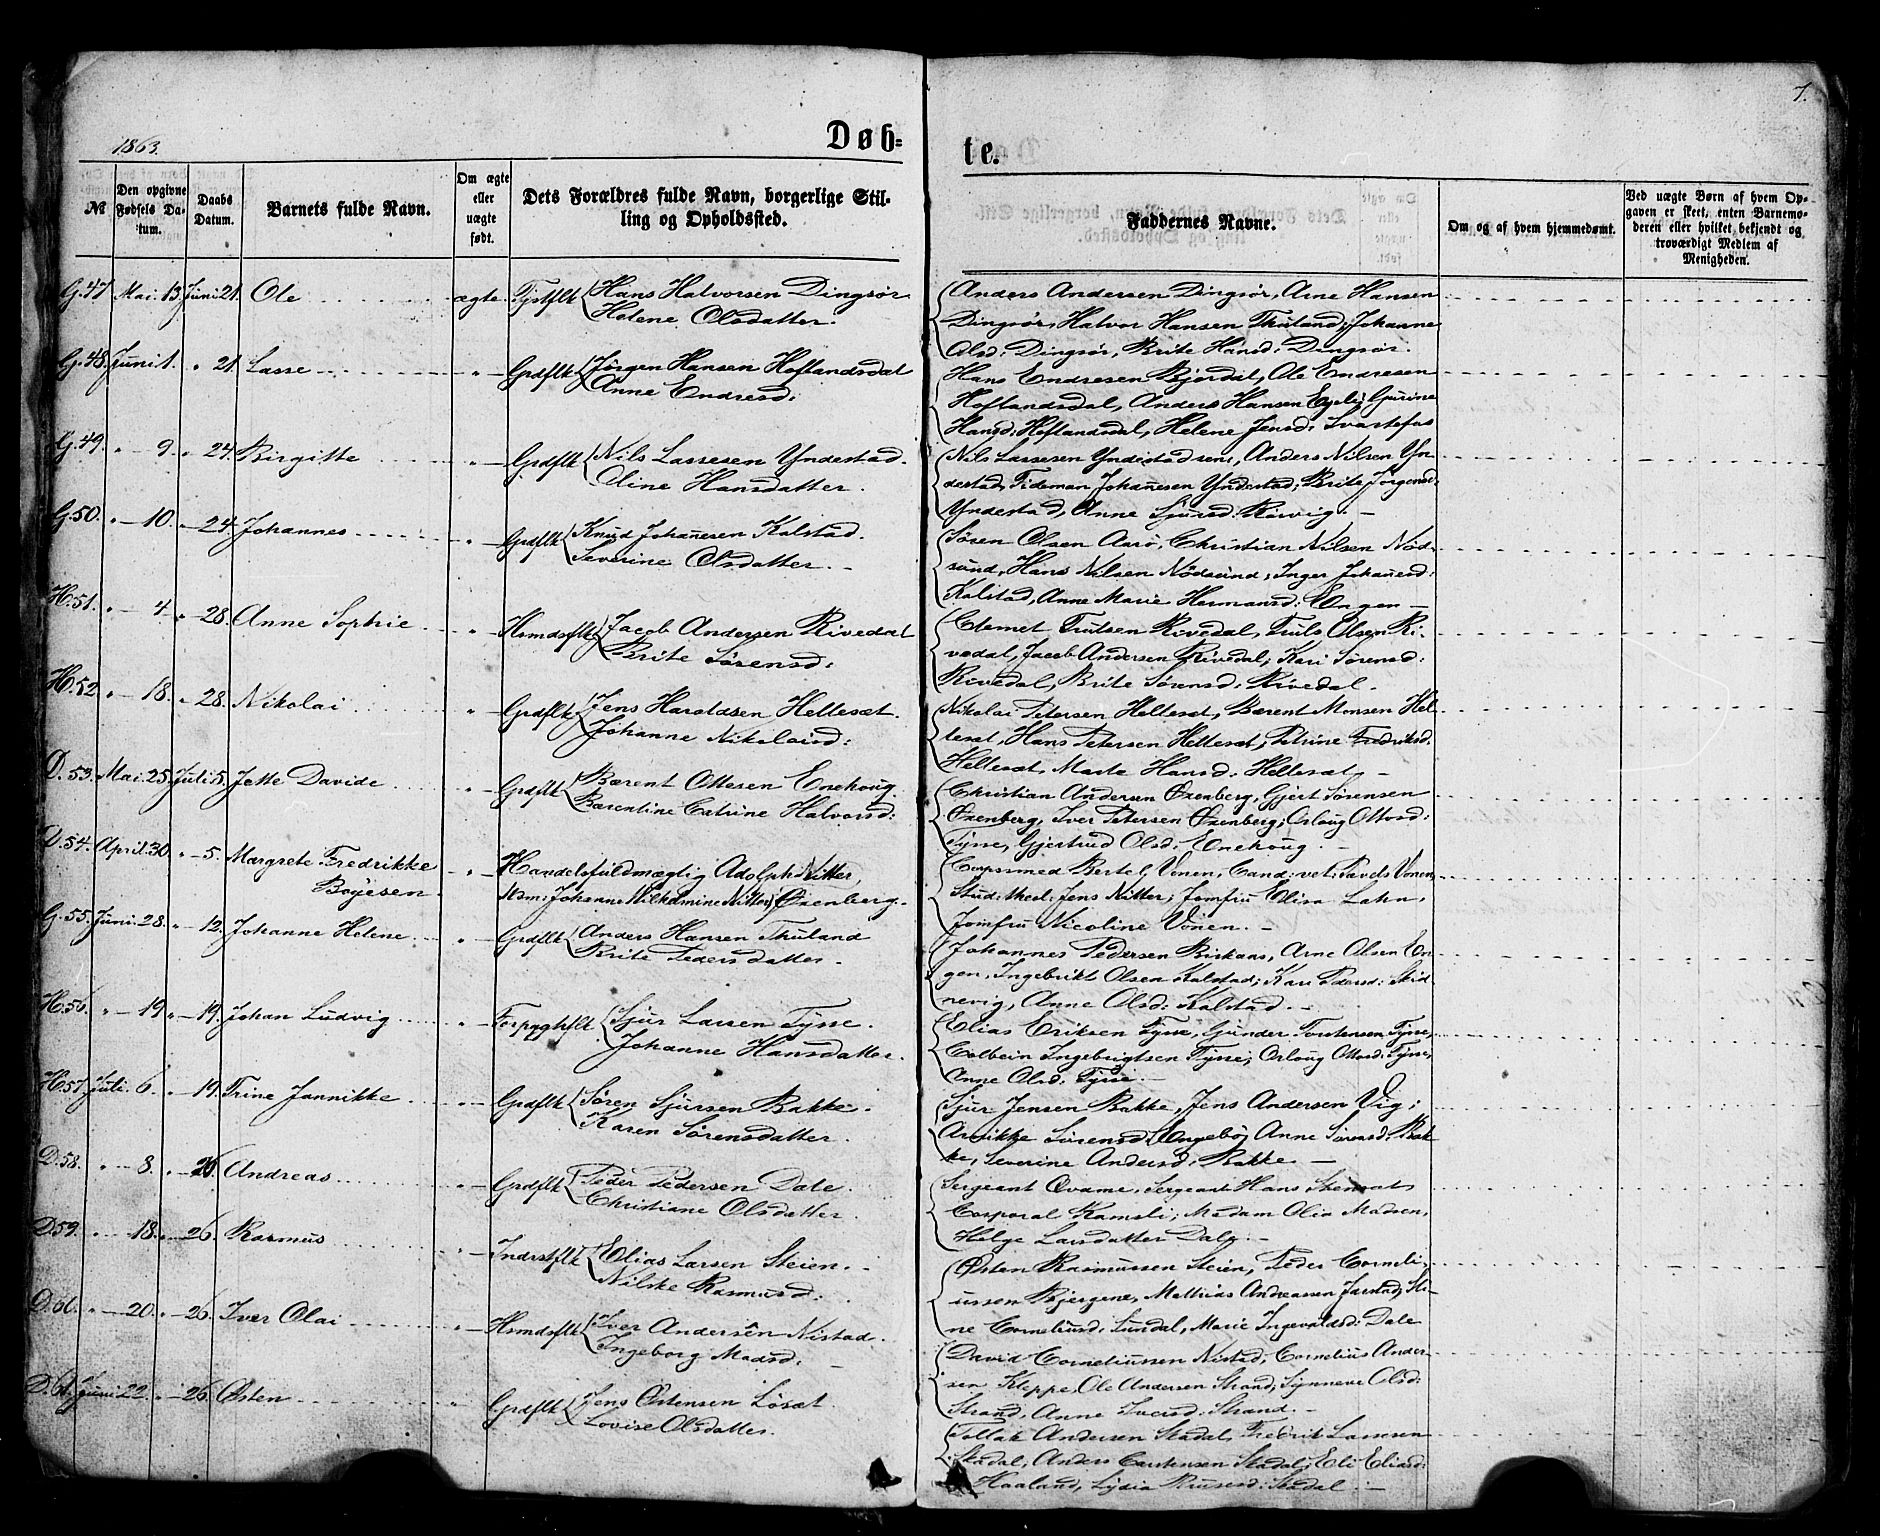 1863.
Døb=
te.
7.
№
Den opgivne Fødsels Da-
tum.
Daabs
Datum.
Barnets fulde Navn.
Om ægte
eller
uægte
født.
Dets Forældres fulde Navn, borgerlige Stil-
ling og Opholdssted.
Faddernes Navne.
Om og af hvem hjemmedøbt.
Ved uægte Børn af hvem Op-
gaven er skeet, enten Barnemo-
deren eller hvilket bekjendt og
troværdigt Medlem af
Menigheden.
G. 47 Mai. 13 Juni 21. Ole ægte Hans Halvorsen Dingsør
Helene Olsdatter.
Anders Andersen Dingsør, Arne Hansen
Dingsør, Halvor Hansen Thuland; Johanne
Olsd: Dingsør, Brite Hansd: Dingsør.
G. 48. Juni 1. " 21. Lasse " Grdflk Jørgen Hansen Hoflandsdal
Anne Endresd:
Hans Endresen Bjordal, Ole Endresen
Hoflandsdal, Anders Hansen Egeli; Gurine
Hansd: Hoflandsdal, Helene Jensd: Svartefos
G. 49 " 9 " 24. Birgitte " Grdflk Nils Lassesen Yndestad.
Oline Hansdatter.
Nils Lassesen Yndestad sen:, Anders Nilsen Yn-
destad, Tideman Johanesen Yndestad; Brite Jørgensd.
Yndestad, Anne Sjursd: Rørvig. —
G. 50. " 10. " 24. Johannes " Grdflk Knud Johanesen Kalstad.
Severine Olsdatter. —
Søren Olsen Aarø, Christian Nilsen Nød-
sund, Hans Nilsen Nødsund; Inger Johanesd:
Kalstad, Anne Marie Hermansd: Engen —
H. 51. " 4. " 28. Anne Sophie " Hsmdsflk Jacob Andersen Rivedal
Brite Sørensd:
Clemet Trulsen Rivedal, Truls Olsen Ri-
vedal, Jacob Andersen Rivedal; Kari Sørensd:
Rivedal, Brite Sørensd: Rivedal.
H. 52 " 18. " 28. Nikolai " Grdflk Jens Haraldsen Hellesæt.
Johanne Nikolaisd:
Nikolai Petersen Hellesæt, Bærent Monsen Hel-
lesæt, Hans Petersen Hellesæt; Petrine Fredriksd:
Hellesæt, Marte Hansd: Hellesæt. —
D. 53. Mai. 25. Juli 5. Jette Davide " Grdflk Bærent Ottesen Enehoug.
Bærentine Catrine Halvorsd:
Christian Andersen Øxenberg, Gjert Sørensen
Øxenberg, Iver Petersen Øxenberg; Orloug Ottosd:
Tysse, Gjertrud Olsd: Enehoug. —
D. 54. April. 30. " 5. Margrete Fredrikke
Bøjesen. " Handelsfuldmægtig Adolph Nitter,
Hsm: Johanne Wilhelmine Nitter; Øxenberg.
Corpsmed Bertel Vonen, Cand: vet: Pavels Vonen,
Stud: theol: Jens Nitter; Jomfru Elisa Lahn,
Jomfru Nicoline Vonen. —
G. 55. Juni 28. " 12. Johanne Helene. " Grdflk Anders Hansen Thuland
Brite Pedersdatter.
Johannes Pedersen Birkans, Arne Olsen En-
gen, Ingebrikt Olsen Kalstad; Kari Pedersd: Skid-
nevig, Anne Olsd: Kalstad. —
H. 56. " 19 " 19. Johan Ludvig " Sjur Larsen Tysse.
Johanne Hansdatter.
Elias Eriksen Tysse, Gunder Torstensen Tysse,
Colbein Ingebrigtsen Tysse; Orloug Ottosd: Tysse,
Anne Olsd: Tysse. —
H. 57 Juli. 6. " 19. Trine Jannikke " Grdflk Søren Sjursen Bakke.
Karen Sørensdatter.
Sjur Jensen Bakke, Jens Andersen Vig;
Annikke Sørensd: Engebø, Anne Sørensd: Bak-
ke, Severine Andersd: Bakke. —
D. 58. " 8. " 26. Andreas " Grdflk Peder Pedersen Dale.
Christiane Olsdatter.
Sergeant Qvame, Sergeant Hans Stensæt,
Corporal Kamsli; Madam Olia Madsen,
Helge Larsdatter Dale. —
D. 59. " 18. " 26. Rasmus " Indrstflk Elias Larsen Steien.
Nilske Rasmusd:
Østen Rasmussen Steien, Peder Corneli-
ussen Bjergene, Mathias Andreassen Jarstad; Sti-
ne Corneliusd: Sundal, Marie Ingevaldsd: Dale
D. 60. " 20. " 26. Iver Olai " Hsmdsflk Iver Andersen Nistad.
Ingeborg Madsd: —
David Corneliussen Nistad, Cornelius Ander-
sen Kleppe, Ole Andersen Strand; Synneve Olsd:
Strand, Anne Iversd: Strand. —
D. 61. Juni 22. " 26. Østen " Grdflk Jens Østensen Løsæt.
Lovise Olsdatter.
Tollak Andersen Skadal, Fredrik Larssen
Skadal, Anders Carstensen Skadal; Eli Eliasd:
Haaland, Lydia Knusesd: Skadal. —